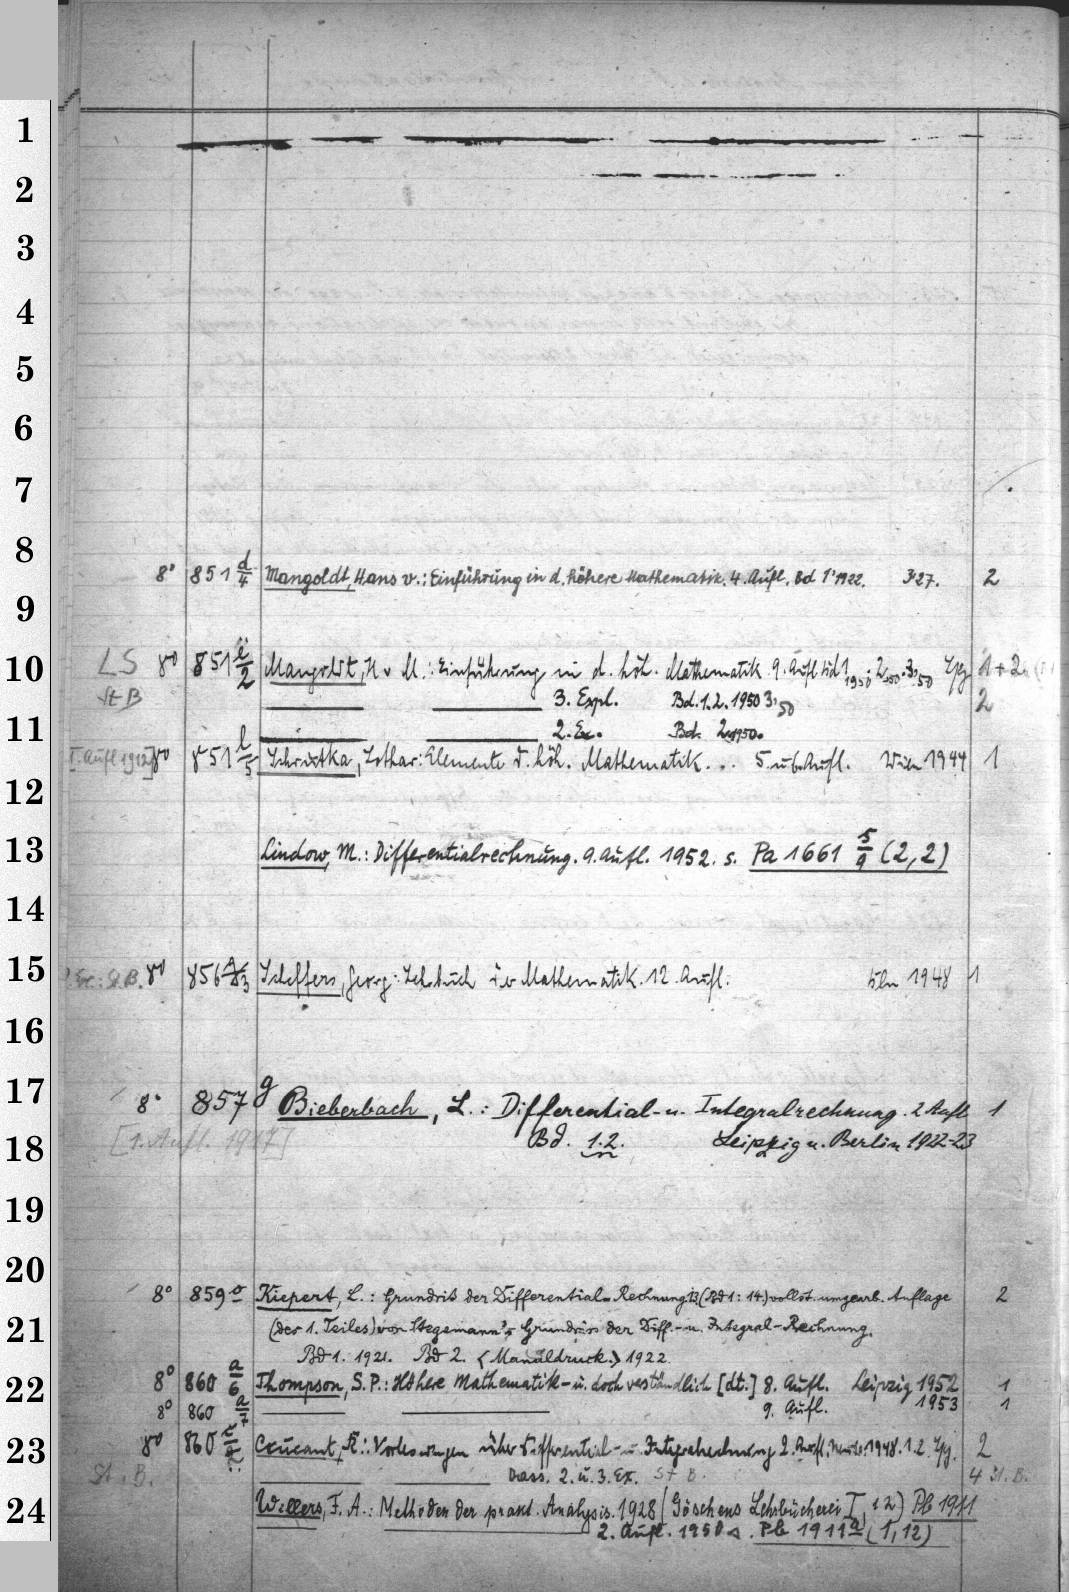 1
2
3
4
5
6
7
8
8° 851 d/4 Mangoldt, Hans v.: Einführung in d. höhere Mathematik. 4. Aufl. Bd 1' 1922. 3'27. 2
9
10 LS 8° 851 e/2 Mangoldt, H v M.: Einführung in d. höh. Mathematik 9. Aufl Bd 1 1950. 2, 50. 3, 50 Lpz 1+2
St B 3. Expl. Bd. 1. 2. 1950 3, 50 2
11 2. Ex. Bd. 2 1950.
[I. Aufl 1912] 8° 851 l/5 Schrutka, Lothar: Elemente d. höh. Mathematik... 5. u 6. Aufl. Wien 1944 1
12
13 Lindow, M.: Differentialrechnung. 9. Aufl. 1952. s. Pa 1661 5/9 (2,2)
14
15 8° 856 Scheffers, Georg: Lehrbuch der Mathematik. 12. Aufl. Bln 1948 1
16
17 8° 857 g Bieberbach, L.: Differential- u. Integralrechnung. 2 Aufl. 1
18 [1. Aufl. 1917] Bd. 1.2. Leipzig u. Berlin 1922-23
19
20
8° 859 o Kiepert, L.: Grundriß der Differential-Rechnung 13 (Bd 1: 14.) vollst. umgearb. Auflage 2
21 (der 1. Teiles) von Stegemann's Grundriss der Diff.- u. Integral-Rechnung.
Bd 1. 1921. Bd 2. <Manuldruck.> 1922.
22 8° 860 a/6 Thompson, S.P.: Höhere Mathematik - u. doch verständlich [dt.] 8. Aufl. Leipzig 1952 1
8° 860 a/7 9. Aufl. 1953 1
23 8° 860 Courant, R.: Vorlesungen über Differential- u. Integralrechnung 2. Aufl. 1948. 1.2 Lpz. 2
St. B. Dass. 2. u. 3. Ex. St B. 4 St. B.
24 Willers, F. A.: Methoden der prakt. Analysis. 1928 (Göschens Lehrbücherei I, 12) Pb 1911
2. Aufl. 1950 s. Pb 1911 a (1,12)